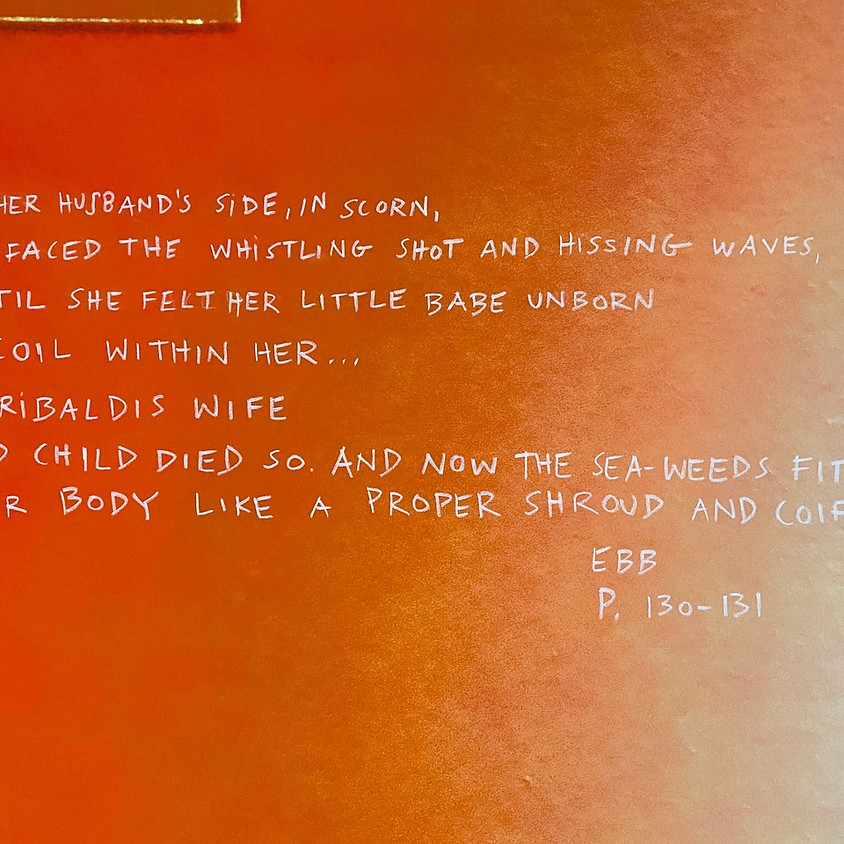 HER HUSBAND'S SIDE, IN SCORN,
FACED THE WHISTLING SHOT AND HISSING WAVES,
TIL SHE FELT HER LITTLE BABE UNBORN
COIL WITHIN HER...
RIBALDIS WIFE
D CHILD DIED SO. AND NOW THE SEA-WEEDS FIT
R BODY LIKE A PROPER SHROUD AND COIF
EBB
P. 130-131